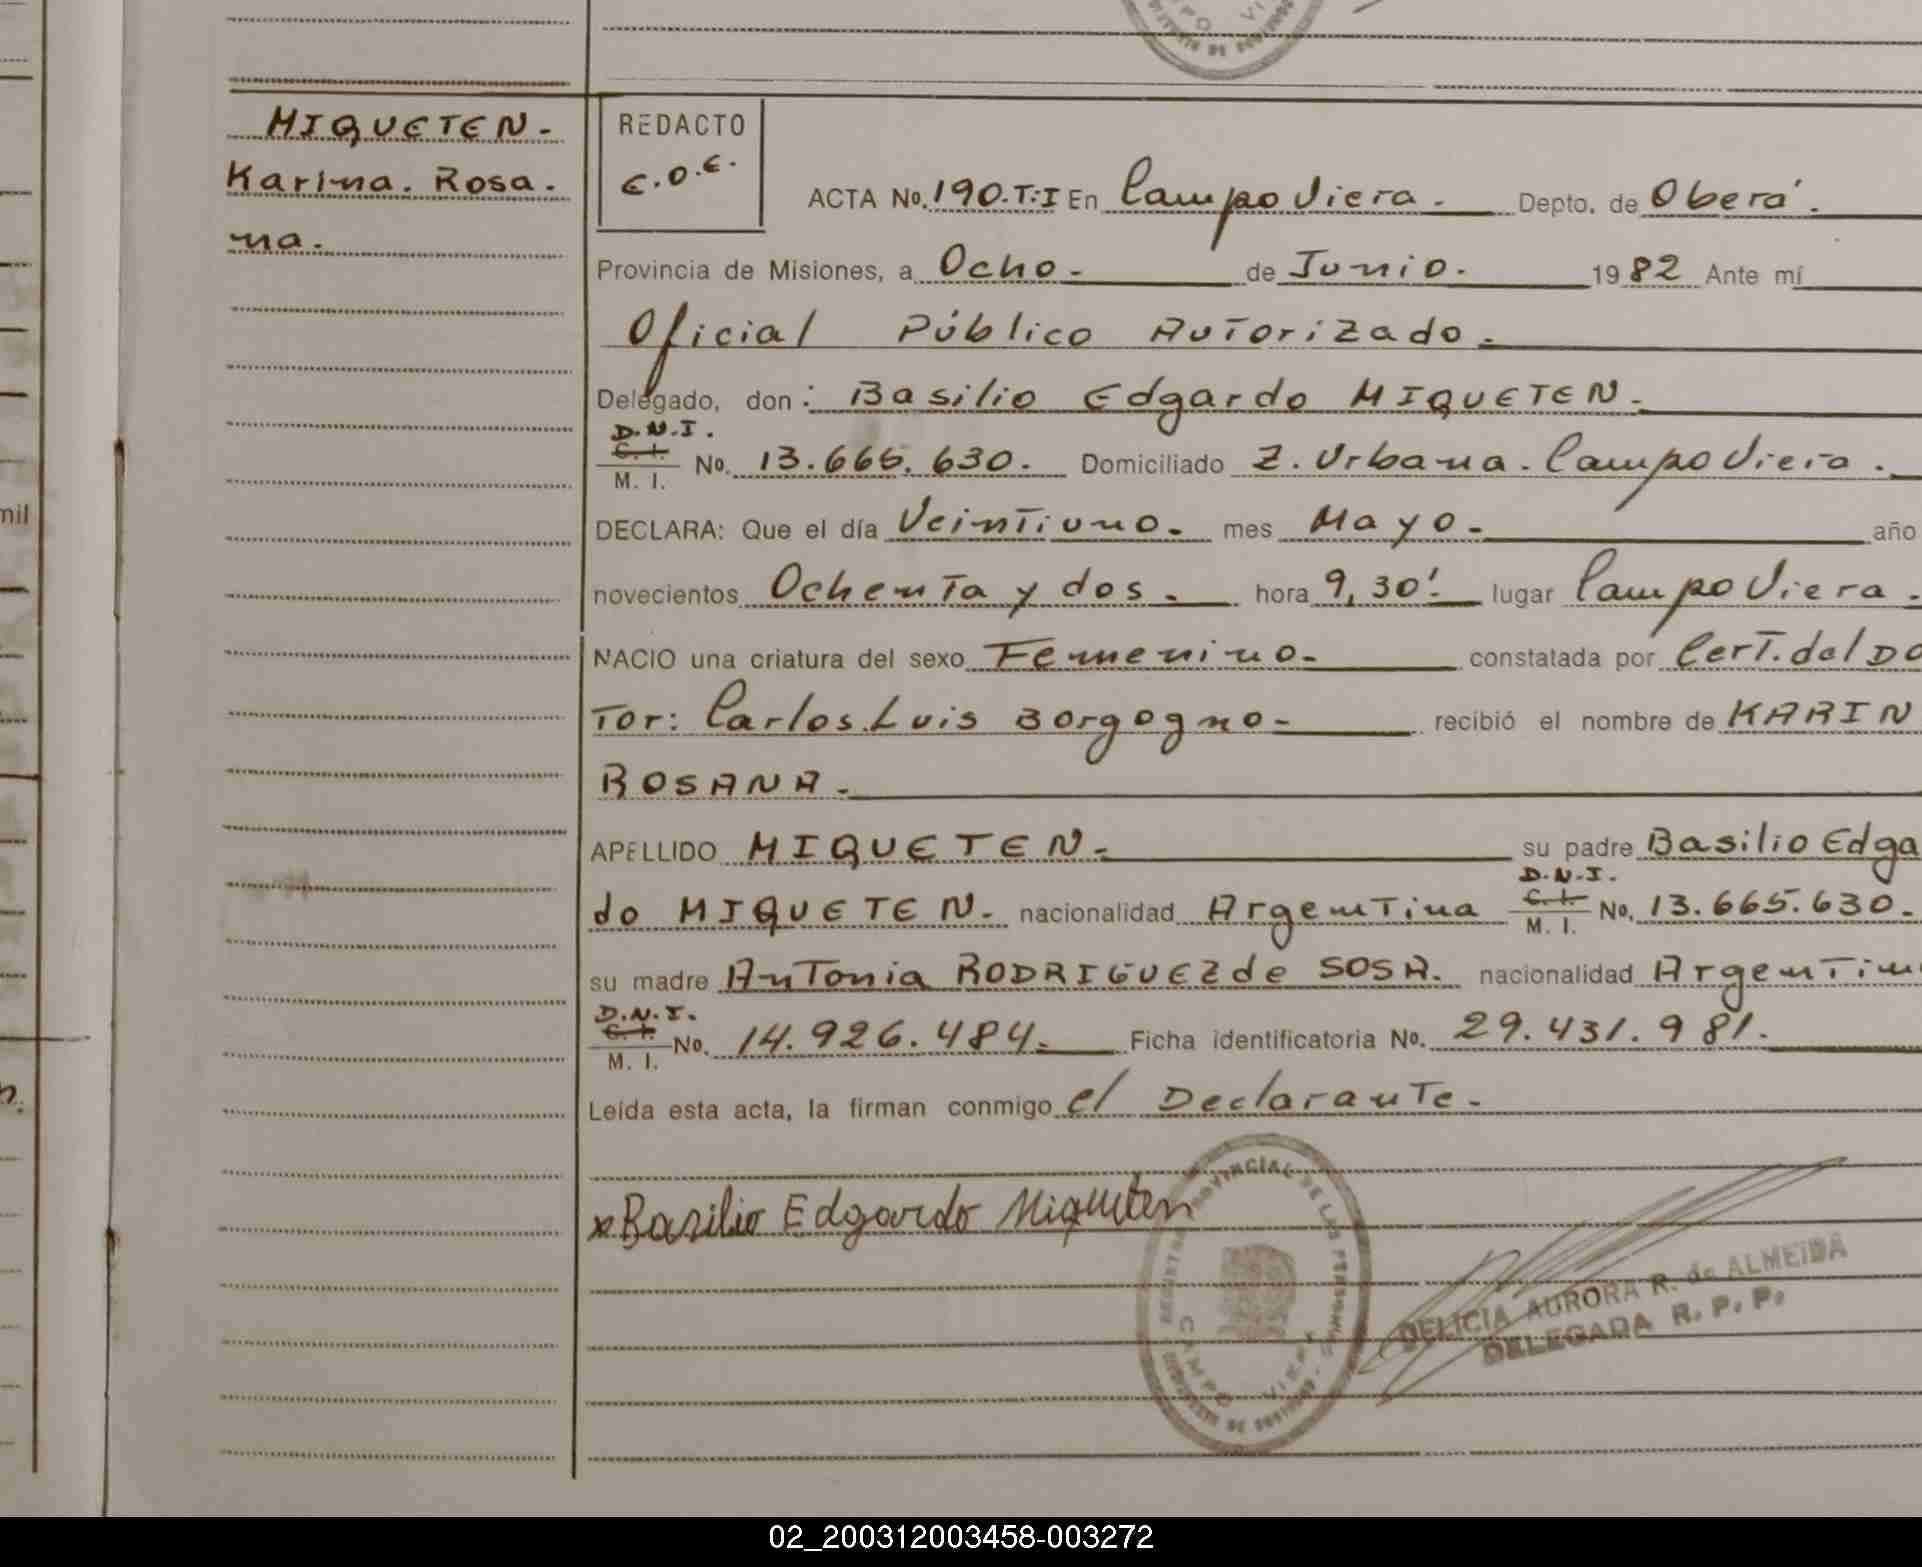 MIQUETEN.
Karina. Rosa.
na.
REDACTO
E.O.E.
ACTA No. 190.T:I En Campo Viera. Depto. de Oberá.
Provincia de Misiones, a Ocho. de Junio. 1982 Ante mí
Oficial Público Autorizado.
Delegado, don: Basilio Edgardo MIQUETEN.
D.N.I.
C. I. No. 13.665.630. Domiciliado Z. Urbana. Campo Viera.
M. I.
DECLARA: Que el día Veintiuno. mes Mayo. año
novecientos Ochenta y dos. hora 9,30' lugar Campo Viera.
NACIO una criatura del sexo Femenino. constatada por Cert. del Do
Tor: Carlos Luis Borgogno. recibió el nombre de KARIN
ROSANA.
APELLIDO MIQUETEN. su padre Basilio Edga
D.N.I.
do MIQUETEN. nacionalidad Argentina C. I. No. 13.665.630.
M. I.
su madre Antonia RODRIGUEZ de SOSA. nacionalidad Argentin
D.N.I.
C. I. No. 14.926.484. Ficha identificatoria No. 29.431.981.
M. I.
Leída esta acta, la firman conmigo el Declarante.
x Basilio Edgardo Miqueten
PROVINCIAL DE LAS PERSONAS
CAMPO VIERA
DELICIA AURORA R. de ALMEIDA
DELEGADA R. P. P.
mil
02_200312003458-003272